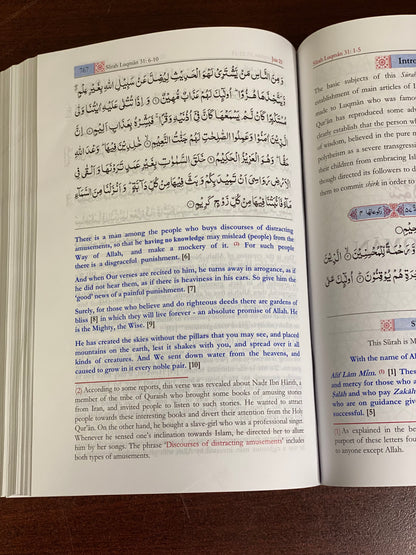 767
Sūrah Luqmān 31: 6-10
Juz 21
وَمِنَ النَّاسِ مَنْ يَّشْتَرِيْ لَهْوَ الْحَدِيْثِ لِيُضِلَّ عَنْ سَبِيْلِ اللّٰهِ بِغَيْرِ عِلْمٍ
وَّيَتَّخِذَهَا هُزُوًا ؕ اُولٰٓئِكَ لَهُمْ عَذَابٌ مُّهِيْنٌ ۝ وَاِذَا تُتْلٰى عَلَيْهِ اٰيٰتُنَا وَلّٰى
مُسْتَكْبِرًا كَاَنْ لَّمْ يَسْمَعْهَا كَاَنَّ فِيْٓ اُذُنَيْهِ وَقْرًا ۚ فَبَشِّرْهُ بِعَذَابٍ اَلِيْمٍ ۝ اِنَّ
الَّذِيْنَ اٰمَنُوْا وَعَمِلُوا الصّٰلِحٰتِ لَهُمْ جَنّٰتُ النَّعِيْمِ ۝ خٰلِدِيْنَ فِيْهَا ؕ وَعْدَ اللّٰهِ
حَقًّا ؕ وَهُوَ الْعَزِيْزُ الْحَكِيْمُ ۝ خَلَقَ السَّمٰوٰتِ بِغَيْرِ عَمَدٍ تَرَوْنَهَا وَاَلْقٰى فِي
الْاَرْضِ رَوَاسِيَ اَنْ تَمِيْدَ بِكُمْ وَبَثَّ فِيْهَا مِنْ كُلِّ دَآبَّةٍ ؕ وَاَنْزَلْنَا مِنَ السَّمَآءِ
مَآءً فَاَنْۢبَتْنَا فِيْهَا مِنْ كُلِّ زَوْجٍ كَرِيْمٍ ۝
There is a man among the people who buys discourses of distracting
amusements, so that he having no knowledge may mislead (people) from the
Way of Allah, and make a mockery of it. (2) For such people
there is a disgraceful punishment. [6]
And when Our verses are recited to him, he turns away in arrogance, as if
he did not hear them, as if there is heaviness in his ears. So give him the
'good' news of a painful punishment. [7]
Surely, for those who believe and do righteous deeds there are gardens of
bliss [8] in which they will live forever - an absolute promise of Allah. He
is the Mighty, the Wise. [9]
He has created the skies without the pillars that you may see, and placed
mountains on the earth, lest it shakes with you, and spread over it all
kinds of creatures. And We sent down water from the heavens, and
caused to grow in it every noble pair. [10]
(2) According to some reports, this verse was revealed about Nadr Ibn Hārith, a
member of the tribe of Quraish who brought some books of amusing stories
from Iran, and invited people to listen to such stories. He wanted to attract
people towards these interesting books and divert their attention from the Holy
Qur'ān. On the other hand, he bought a slave-girl who was a professional singer.
Whenever he sensed one's inclination towards Islam, he directed her to allure
him by her songs. The phrase 'Discourses of distracting amusements' includes
both types of amusements.
Sūrah Luqmān 31: 1-5
The basic subjects of this
establishment of main articles of
made to Luqmān who was
Qur'ān has reproduced some
clearly establish that the person
of wisdom, believed in the pure
polytheism as a severe transgression
their children from embracing
though directed its followers to
them to commit shirk in order
This Sūrah is
With the name of
Alif Lām Mīm. (1) [1] These
and mercy for those who
Salāh and who pay Zakāh
who are on guidance
successful. [5]
(1) As explained in the
purport of these letters
to anyone except Allah.